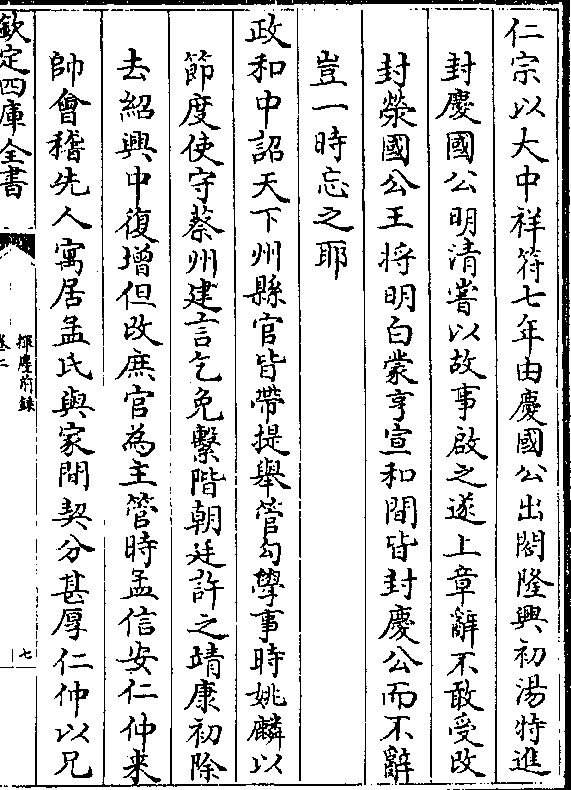 仁宗以大中祥符七年由慶國公出閤隆興初湯特進
封慶國公明清嘗以故事啟之遂上章辭不敢受改
封榮國公王將明白蒙亨宣和間皆封慶公而不辭
豈一時忘之耶
政和中詔天下州縣官皆帶提舉管勾學事時姚麟以
節度使守蔡州建言乞免繫階朝廷許之靖康初除
去紹興中復增但改庶官為主管時孟信安仁仲来
帥會稽先人寓居孟氏與家間契分甚厚仁仲以兄
欽定四庫全書
揮麈前録
卷二
七